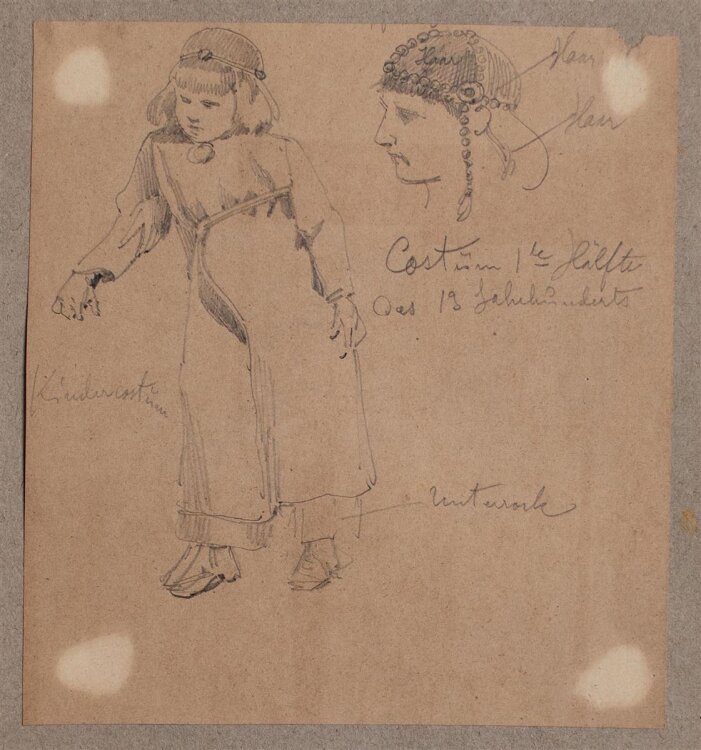 Haar
Haar
Haar
Costüm 1te Hälfte
des 13 Jahrhunderts
Kindercostüm
Unterrock